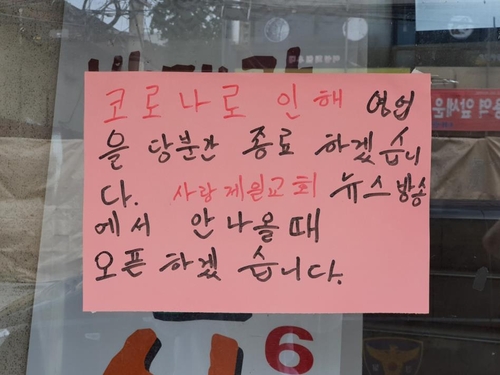 코로나로 인해 영업
을 당분간 종료 하겠습니
다. 사랑제일교회 뉴스방송
에서 안나올때
오픈 하겠습니다.
6